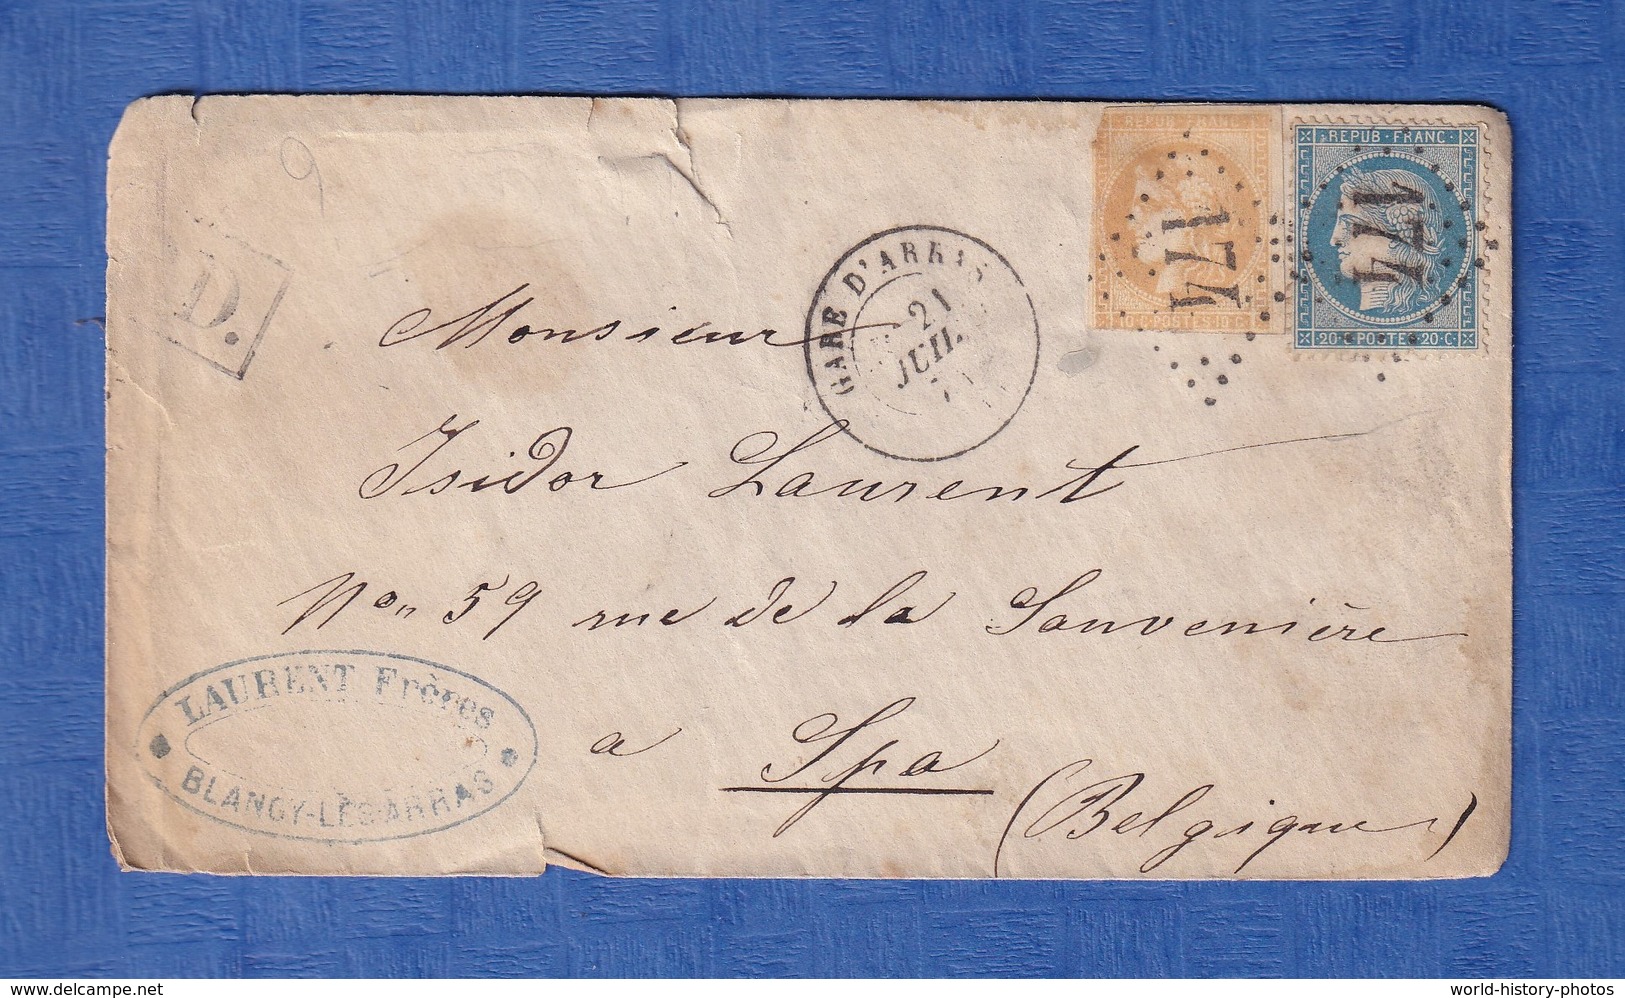 REPUB · FRANC
1774
10 · C · POSTES · 10 · C
REPUB · FRANC
1774
20 · C · POSTES · 20 · C
P.D.
GARE D'ARRAS
21
JUIL.
Monsieur
Isidor Laurent
No„ 59 rue de la Sauvenière
a Spa
(Belgique)
LAURENT Frères
BLANGY-LÈS-ARRAS
delcampe.net
world-history-photos